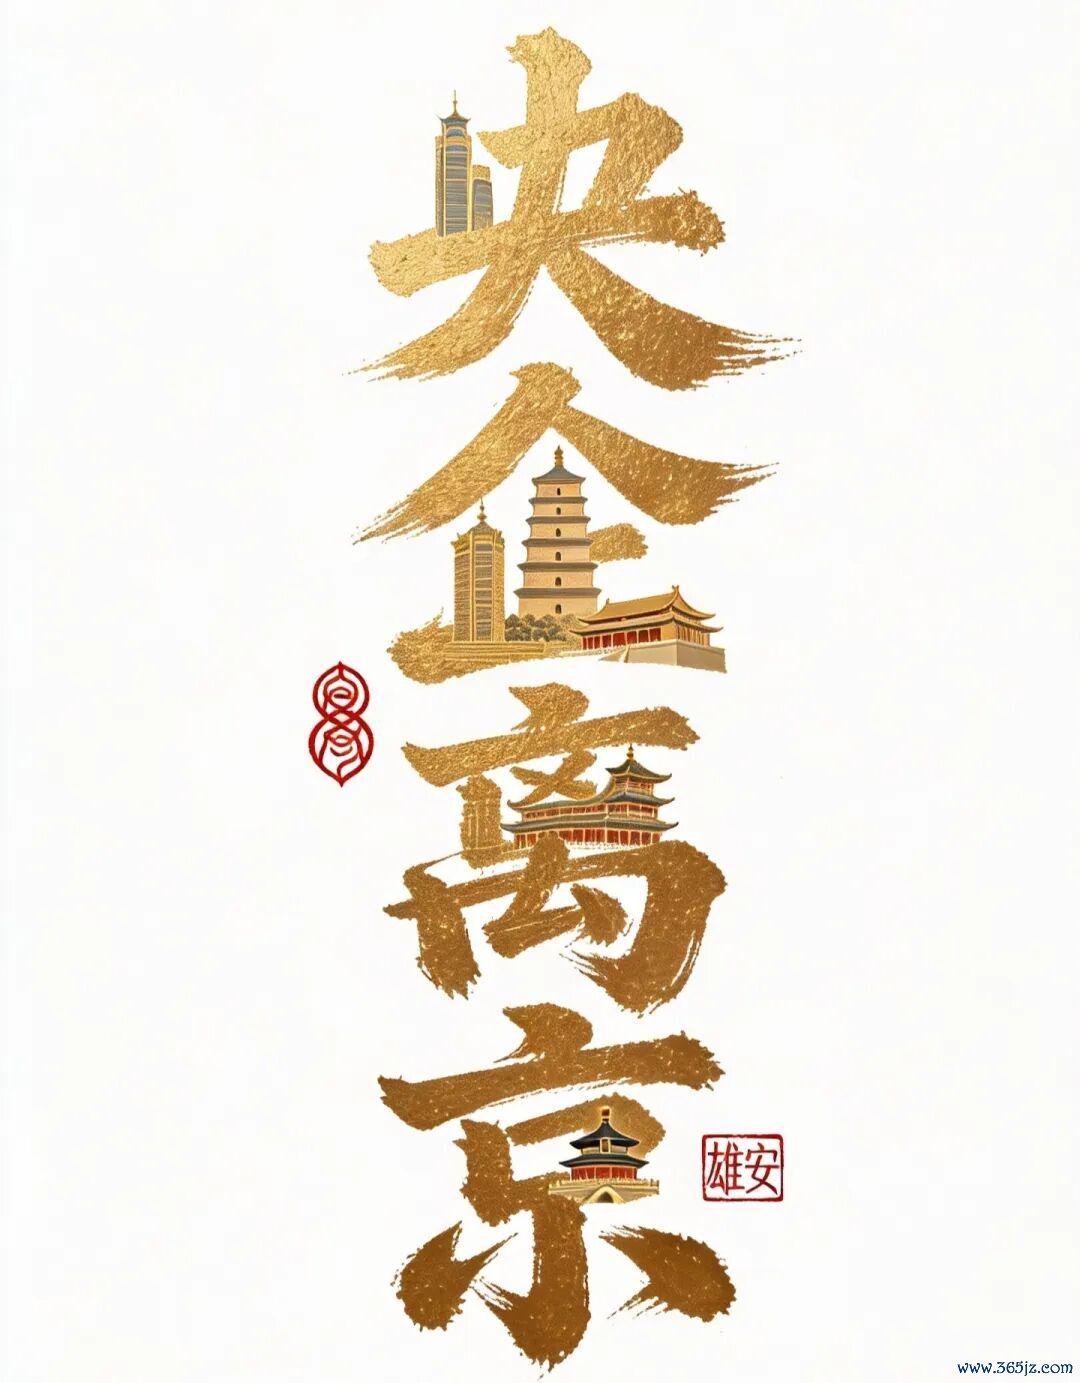 央企离京
雄安
www.365jz.com